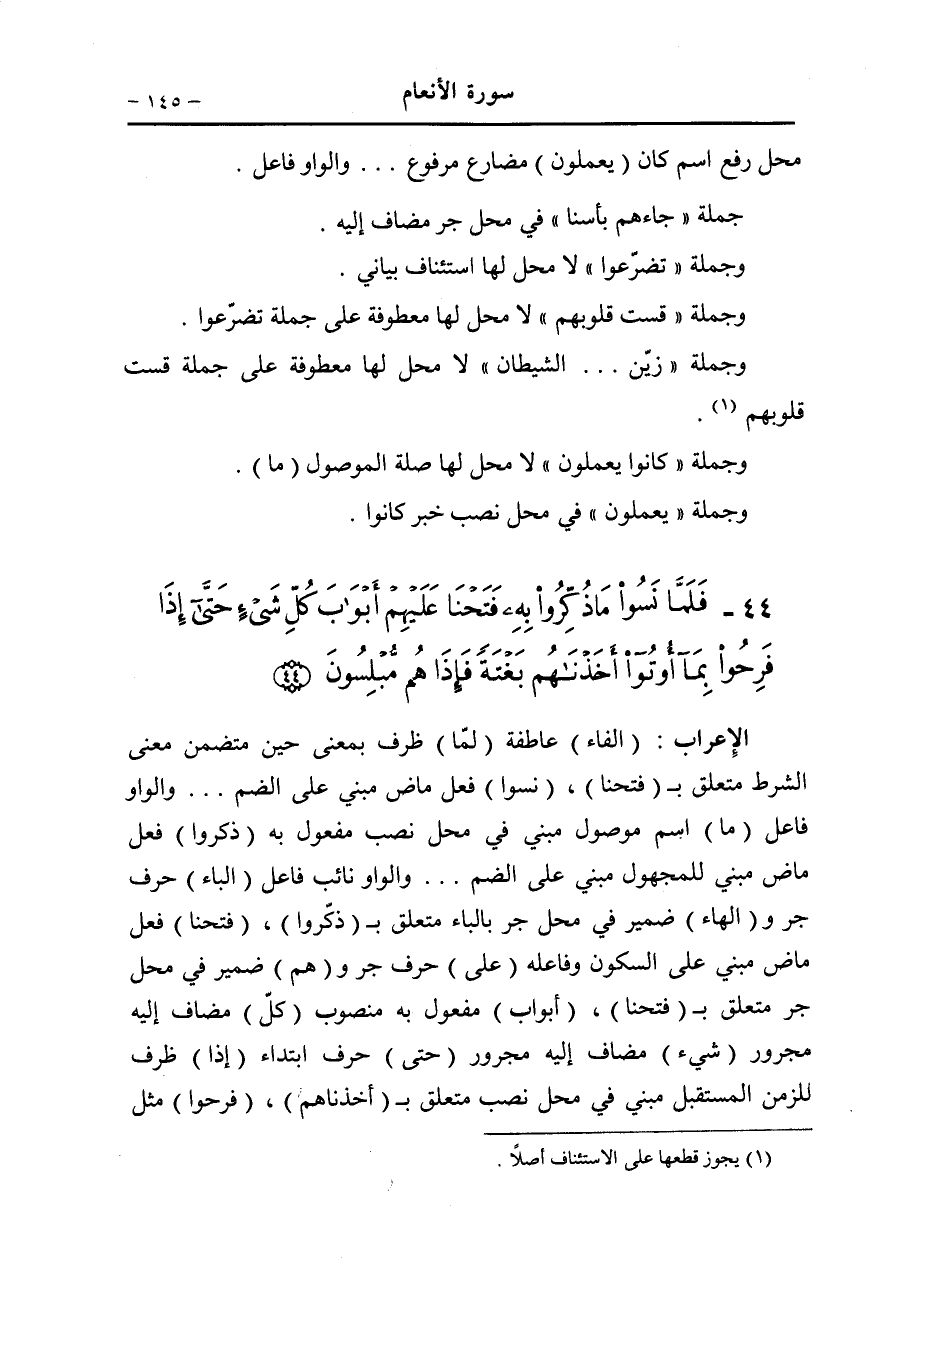 سورة الأنعام
– ١٤٥ –
محل رفع اسم كان ( يعملون ) مضارع مرفوع . . . والواو فاعل .
جملة « جاءهم بأسنا » في محل جر مضاف إليه .
وجملة « تضرّعوا » لا محل لها استئناف بياني .
وجملة « قست قلوبهم » لا محل لها معطوفة على جملة تضرّعوا .
وجملة « زيّن . . . الشيطان » لا محل لها معطوفة على جملة قست
قلوبهم (١) .
وجملة « كانوا يعملون » لا محل لها صلة الموصول ( ما ) .
وجملة « يعملون » في محل نصب خبر كانوا .
٤٤ ـ فَلَمَّا نَسُوا۟ مَا ذُكِّرُوا۟ بِهِۦ فَتَحْنَا عَلَيْهِمْ أَبْوَٰبَ كُلِّ شَىْءٍ حَتَّىٰٓ إِذَا
فَرِحُوا۟ بِمَآ أُوتُوٓا۟ أَخَذْنَٰهُم بَغْتَةً فَإِذَا هُم مُّبْلِسُونَ ﴿٤٤﴾
الإعراب : ( الفاء ) عاطفة ( لمّا ) ظرف بمعنى حين متضمن معنى
الشرط متعلق بـ ( فتحنا ) ، ( نسوا ) فعل ماض مبني على الضم . . . والواو
فاعل ( ما ) اسم موصول مبني في محل نصب مفعول به ( ذكروا ) فعل
ماض مبني للمجهول مبني على الضم . . . والواو نائب فاعل ( الباء ) حرف
جر و ( الهاء ) ضمير في محل جر بالباء متعلق بـ ( ذكّروا ) ، ( فتحنا ) فعل
ماض مبني على السكون وفاعله ( على ) حرف جر و ( هم ) ضمير في محل
جر متعلق بـ ( فتحنا ) ، ( أبواب ) مفعول به منصوب ( كلّ ) مضاف إليه
مجرور ( شيء ) مضاف إليه مجرور ( حتى ) حرف ابتداء ( إذا ) ظرف
للزمن المستقبل مبني في محل نصب متعلق بـ ( أخذناهم ) ، ( فرحوا ) مثل
(١) يجوز قطعها على الاستئناف أصلاً .